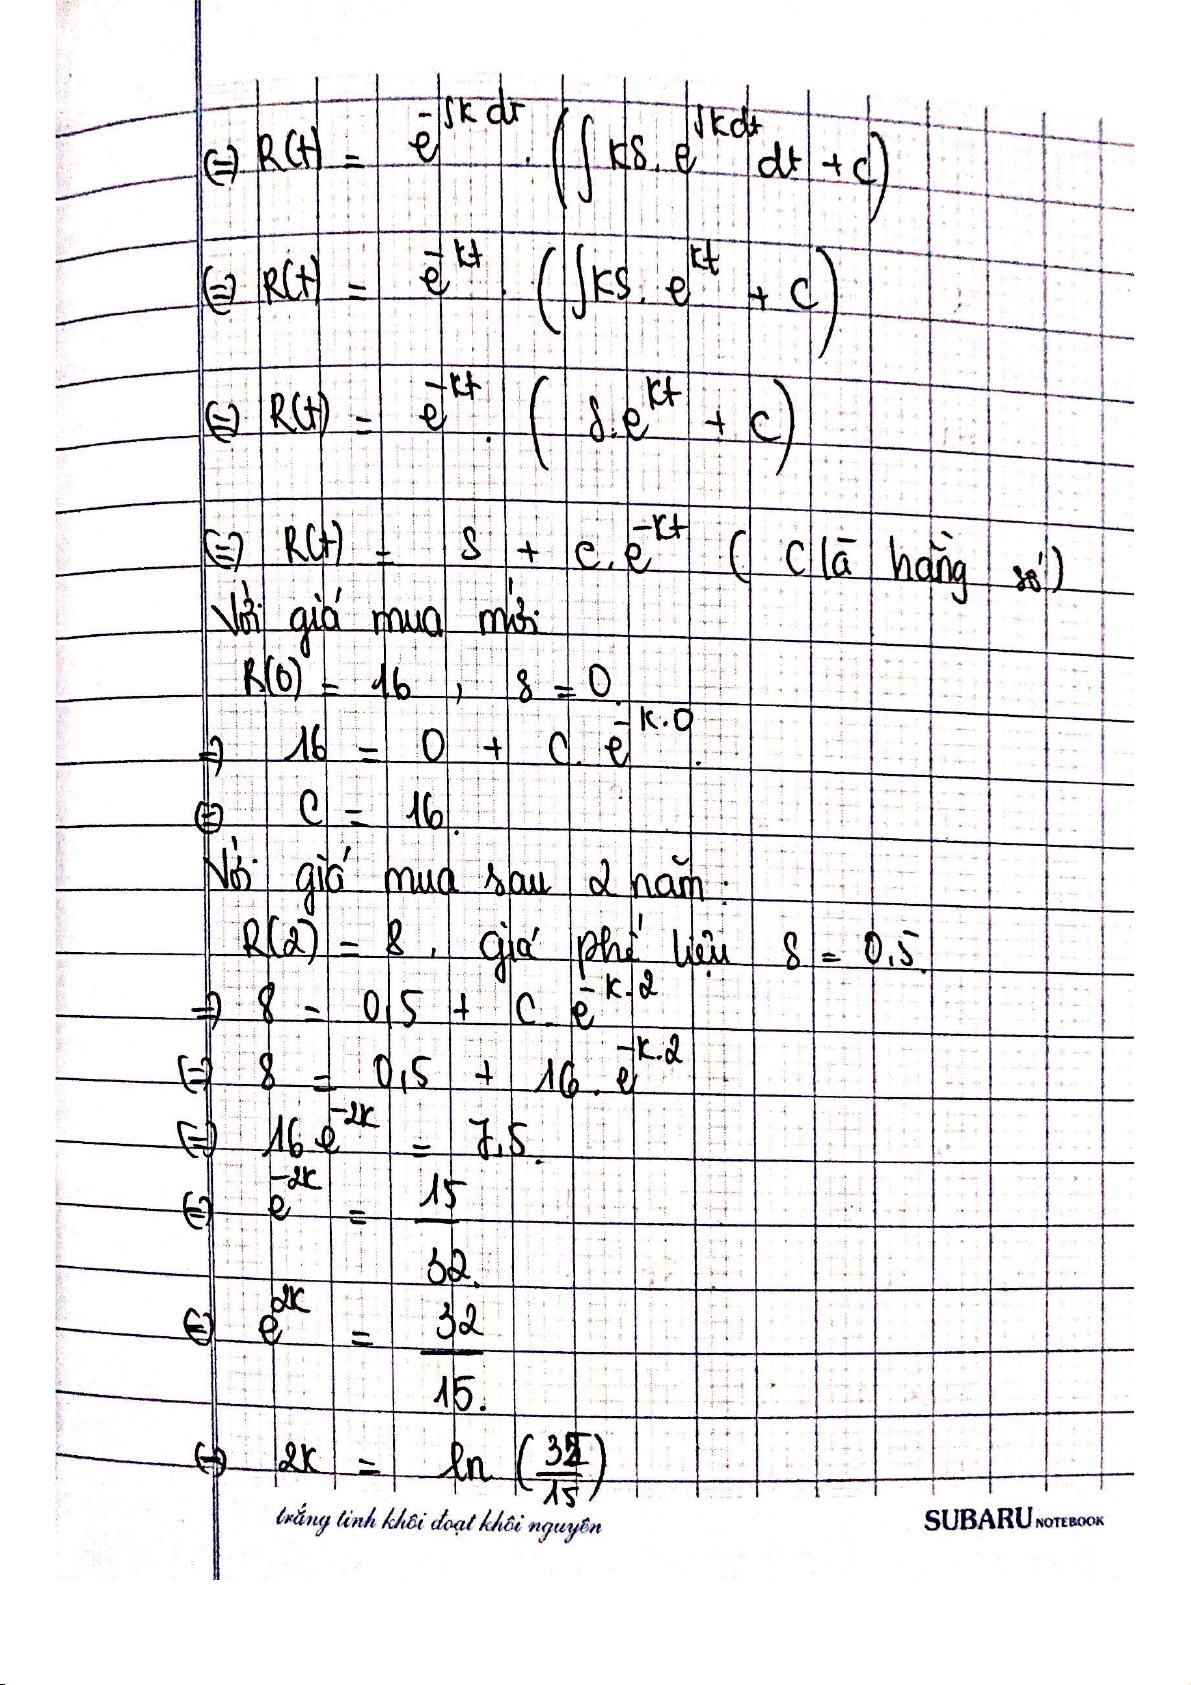 (=) R(t) = e^{-∫k dt} . (∫ kS. e^{∫kdt} dt + C)
(=) R(t) = e^{-kt} . (∫kS. e^{kt} + C)
(=) R(t) = e^{-kt} . ( S.e^{kt} + C)
(=) R(t) = S + C.e^{-kt} ( C là hằng số)
Với giá mua mới:
R(0) = 16 , S = 0.
=) 16 = 0 + C. e^{-k.0}.
(=) C = 16.
Với giá mua sau 2 năm:
R(2) = 8, giá phế liệu S = 0,5.
=) 8 = 0,5 + C. e^{-k.2}
(=) 8 = 0,5 + 16. e^{-k.2}
(=) 16 e^{-2k} = 7,5.
(=) e^{-2k} = 15/32.
(=) e^{2k} = 32/15.
(=) 2k = ln (32/15)
trắng tinh khôi đoạt khôi nguyên
SUBARU NOTEBOOK